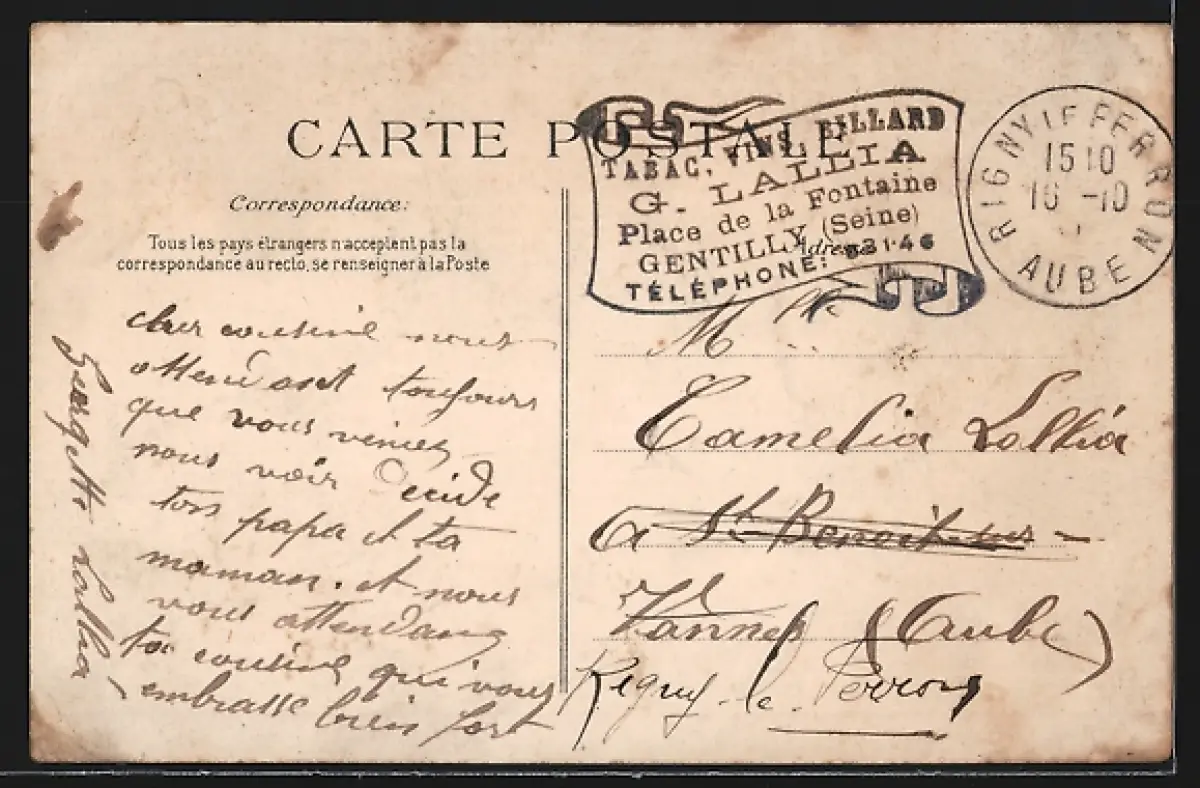 CARTE POSTALE
Correspondance:
Tous les pays étrangers n'acceptent pas la
correspondance au recto, se renseigner à la Poste
TABAC, VINS, BILLARD
G. LALLIA
Place de la Fontaine
GENTILLY (Seine)
TÉLÉPHONE: 821·46
Adresse
RIGNY LE FERRON
15 10
16 -10
AUBE
cher cousine nous
attendont toujours
que vous veniez
nous voir Décide
ton papa et ta
maman. et nous
vous attendans
ta cousine qui vous
embrasse bien fort
Georgette Lallia
M lle
Camelia Lallia
a St Benoit sur
Vannes (Aube)
Rigny-le-Ferron